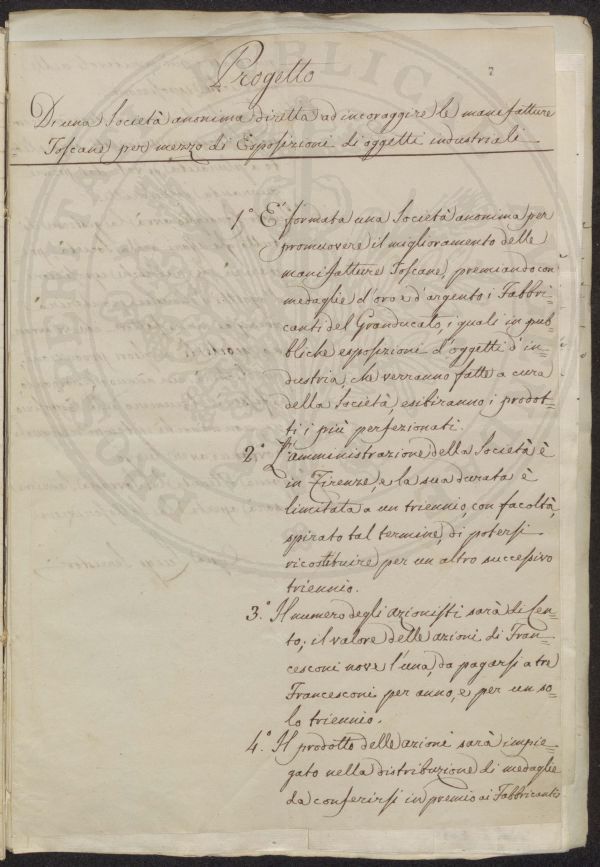 Progetto
7
Di una Società anonima diretta ad incoraggire le manifatture
Toscane per mezzo di Esposizioni di oggetti industriali
1° E' formata una Società anonima per
promuovere il miglioramento delle
manifatture Toscane, premiando con
medaglie d'oro e d'argento i Fabbri=
canti del Granducato, i quali in pub=
bliche esposizioni d'oggetti d'in=
dustria, che verranno fatte a cura
della Società, esibiranno i prodot=
ti i più perfezionati.
2° L'amministrazione della Società è
in Firenze, e la sua durata è
limitata a un triennio, con facoltà,
spirato tal termine, di potersi
ricostituire per un altro successivo
triennio.
3.° Il numero degli azionisti sarà di Cen=
to; il valore delle azioni di Fran=
cesconi nove l'una, da pagarsi a tre
Francesconi per anno, e per un so=
lo triennio.
4.° Il prodotto delle azioni sarà impie=
gato nella distribuzione di medaglie
da conferirsi in premio ai Fabbricanti